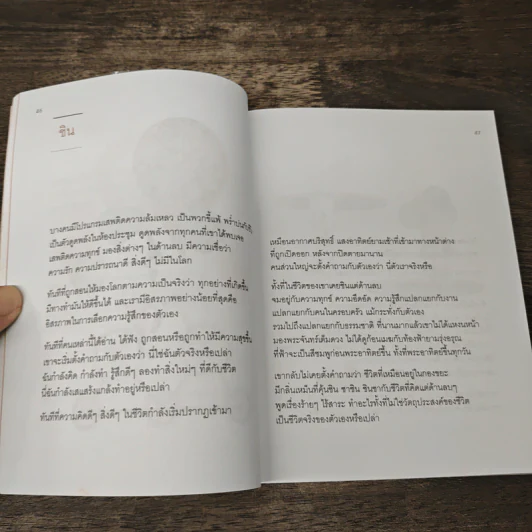 66
ชิน
บางคนมีโปรแกรมเสพติดความล้มเหลว เป็นพวกขี้แพ้ พร่ำบ่นกับชี
เป็นตัวดูดพลังในห้องประชุม ดูดพลังจากทุกคนที่เขาได้พบเจอ
เสพติดความทุกข์ มองสิ่งต่างๆ ในด้านลบ มีความเชื่อว่า
ความรัก ความปรารถนาดี สิ่งดีๆ ไม่มีในโลก
ทันทีที่ถูกสอนให้มองโลกตามความเป็นจริงว่า ทุกอย่างที่เกิดขึ้น
มีทางทำมันให้ดีขึ้นได้ และเรามีอิสรภาพอย่างน้อยที่สุดคือ
อิสรภาพในการเลือกความรู้สึกของตัวเอง
ทันทีที่คนเหล่านี้ได้อ่าน ได้ฟัง ถูกสอนหรือถูกทำให้มีความสุขขึ้น
เขาจะเริ่มตั้งคำถามกับตัวเองว่า นี่ใช่ฉันตัวจริงหรือเปล่า
ฉันกำลังคิด กำลังทำ รู้สึกดีๆ ลองทำสิ่งใหม่ๆ ที่ดีกับชีวิต
นี่ฉันกำลังเสแสร้งแกล้งทำอยู่หรือเปล่า
ทันทีที่ความคิดดีๆ สิ่งดีๆ ในชีวิตกำลังเริ่มปรากฏเข้ามา
67
เหมือนอากาศบริสุทธิ์ แสงอาทิตย์ยามเช้าที่เข้ามาทางหน้าต่าง
ที่ถูกเปิดออก หลังจากปิดตายมานาน
คนส่วนใหญ่จะตั้งคำถามกับตัวเองว่า นี่ตัวเราจริงหรือ
ทั้งที่ในชีวิตของเขาเคยชินแต่ด้านลบ
จมอยู่กับความทุกข์ ความอึดอัด ความรู้สึกแปลกแยกกับงาน
แปลกแยกกับคนในครอบครัว แม้กระทั่งกับตัวเอง
รวมไปถึงแปลกแยกกับธรรมชาติ ที่นานมากแล้วเขาไม่ได้แหงนหน้า
มองพระจันทร์เต็มดวง ไม่ได้ดูก้อนเมฆกับท้องฟ้ายามรุ่งอรุณ
ที่ฟ้าจะเป็นสีชมพูก่อนพระอาทิตย์ขึ้น ทั้งที่พระอาทิตย์ขึ้นทุกวัน
เขากลับไม่เคยตั้งคำถามว่า ชีวิตที่เหมือนอยู่ในกองขยะ
มีกลิ่นเหม็นที่คุ้นชิน ชาชิน ชินชากับชีวิตที่คิดแต่ด้านลบๆ
พูดเรื่องร้ายๆ ไร้สาระ ทำอะไรทั้งที่ไม่ใช่วัตถุประสงค์ของชีวิต
เป็นชีวิตจริงของตัวเองหรือเปล่า